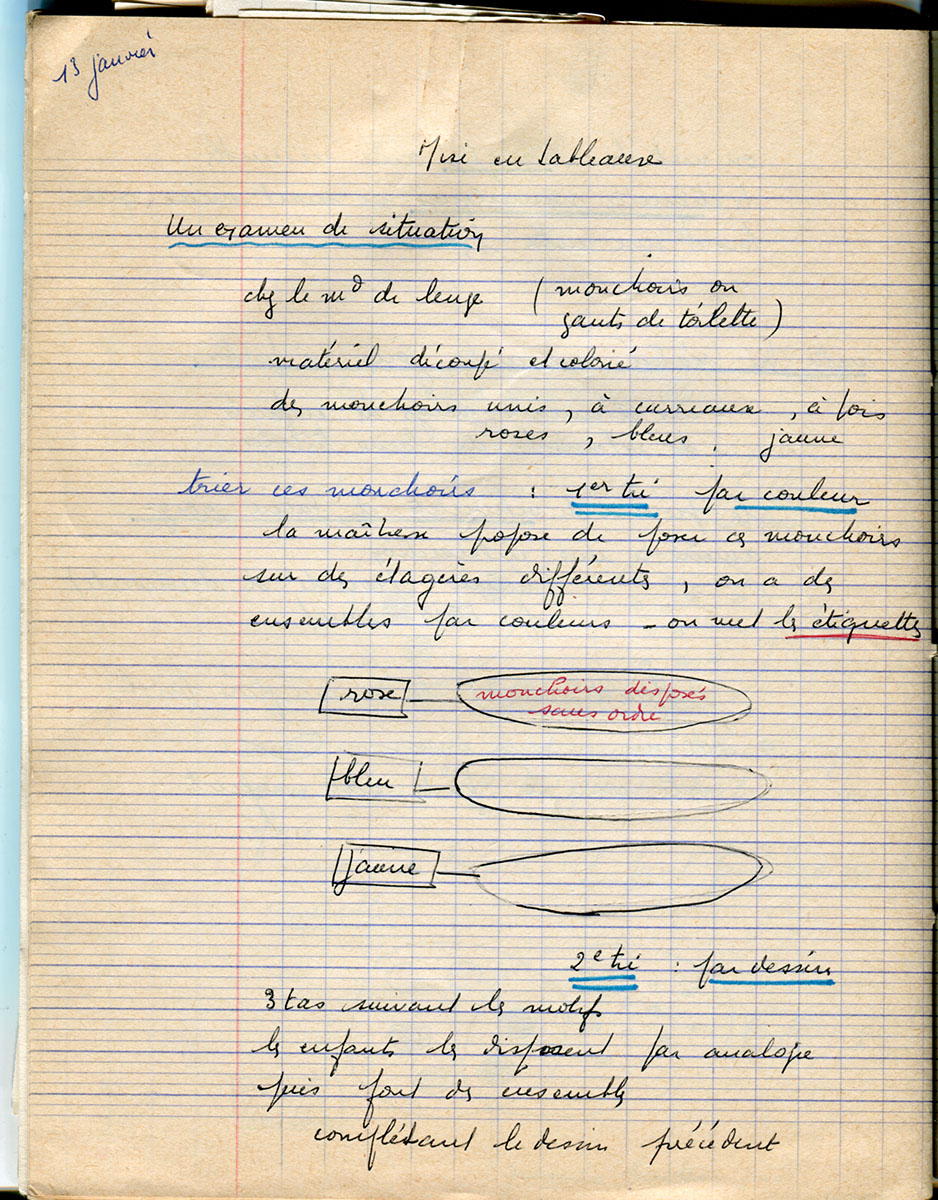 13 janvier
Mise en tableaux
Un examen de situation
chez le md de linge (mouchoirs ou
gants de toilette)
matériel découpé et colorié
des mouchoirs unis, à carreaux, à pois
roses, bleus, jaune
trier ces mouchoirs : 1er tri par couleur
la maîtresse propose de poser ces mouchoirs
sur des étagères différentes, on a des
ensembles par couleurs - on met les étiquettes
rose
mouchoirs disposés
sans ordre
bleu
jaune
2e tri : par dessin
3 tas suivant les motifs
les enfants les disposent par analogie
puis font des ensembles
complétant le dessin précédent